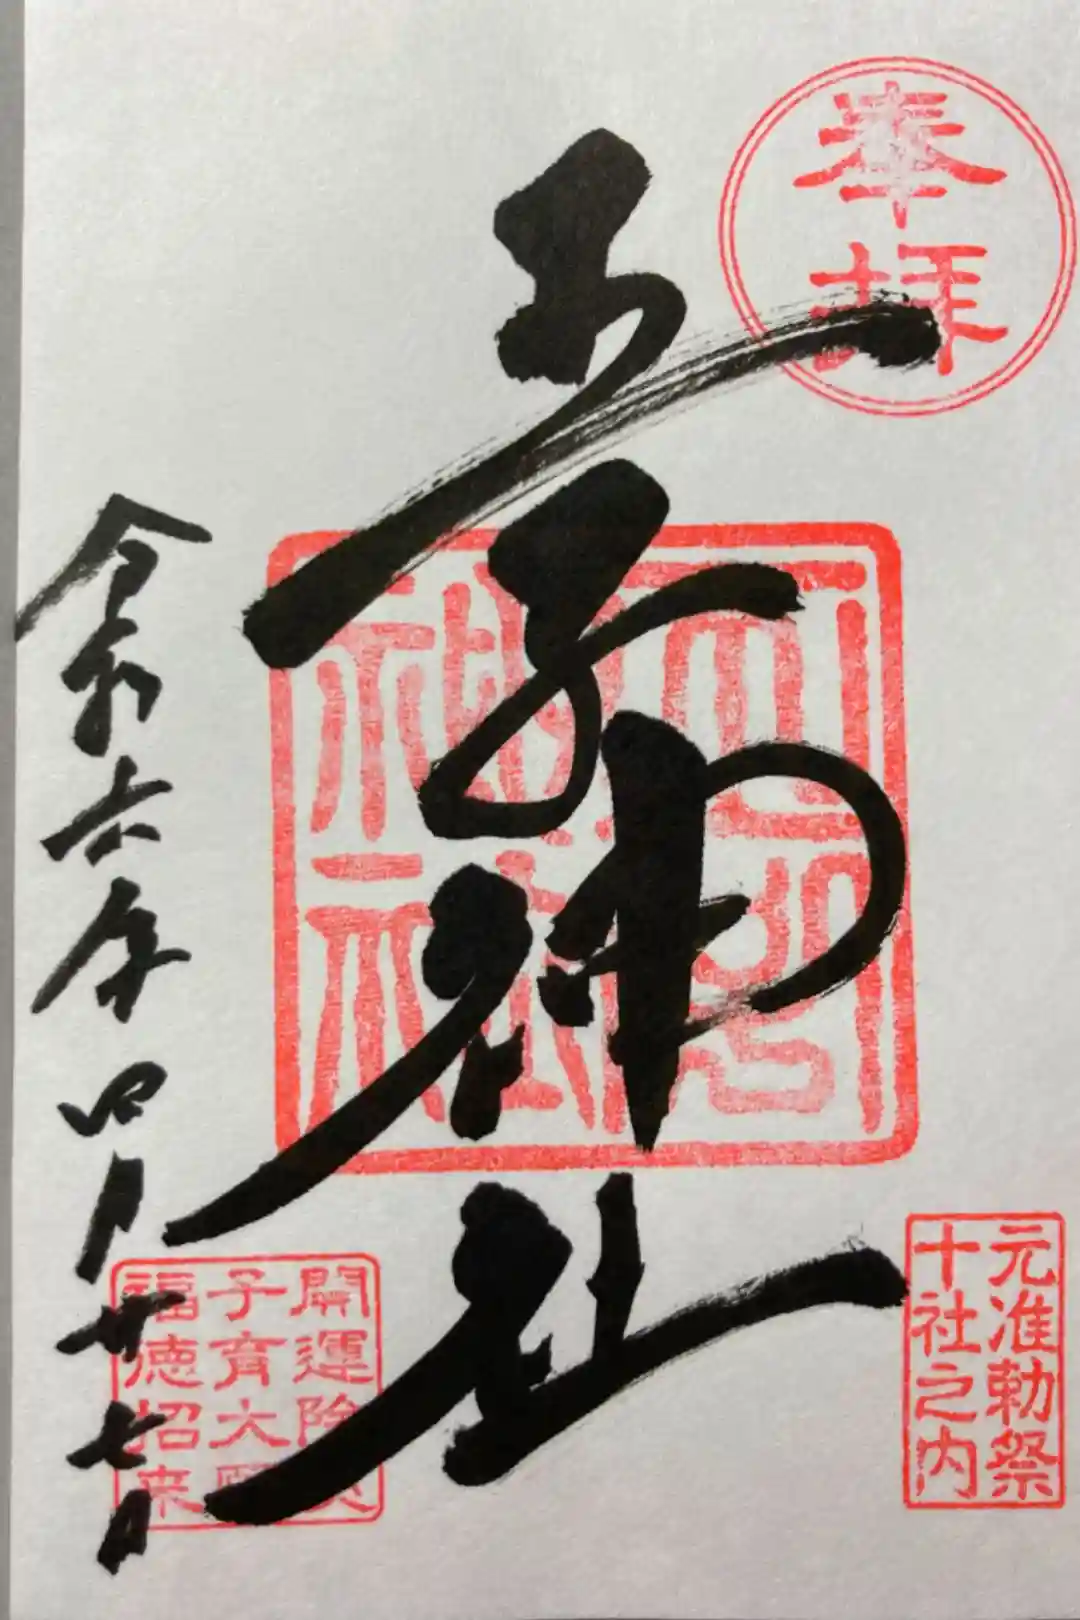 奉拝
王子神社
元准勅祭
十社之内
開運除災
子育大願
福徳招来
令和六年四月廿七日